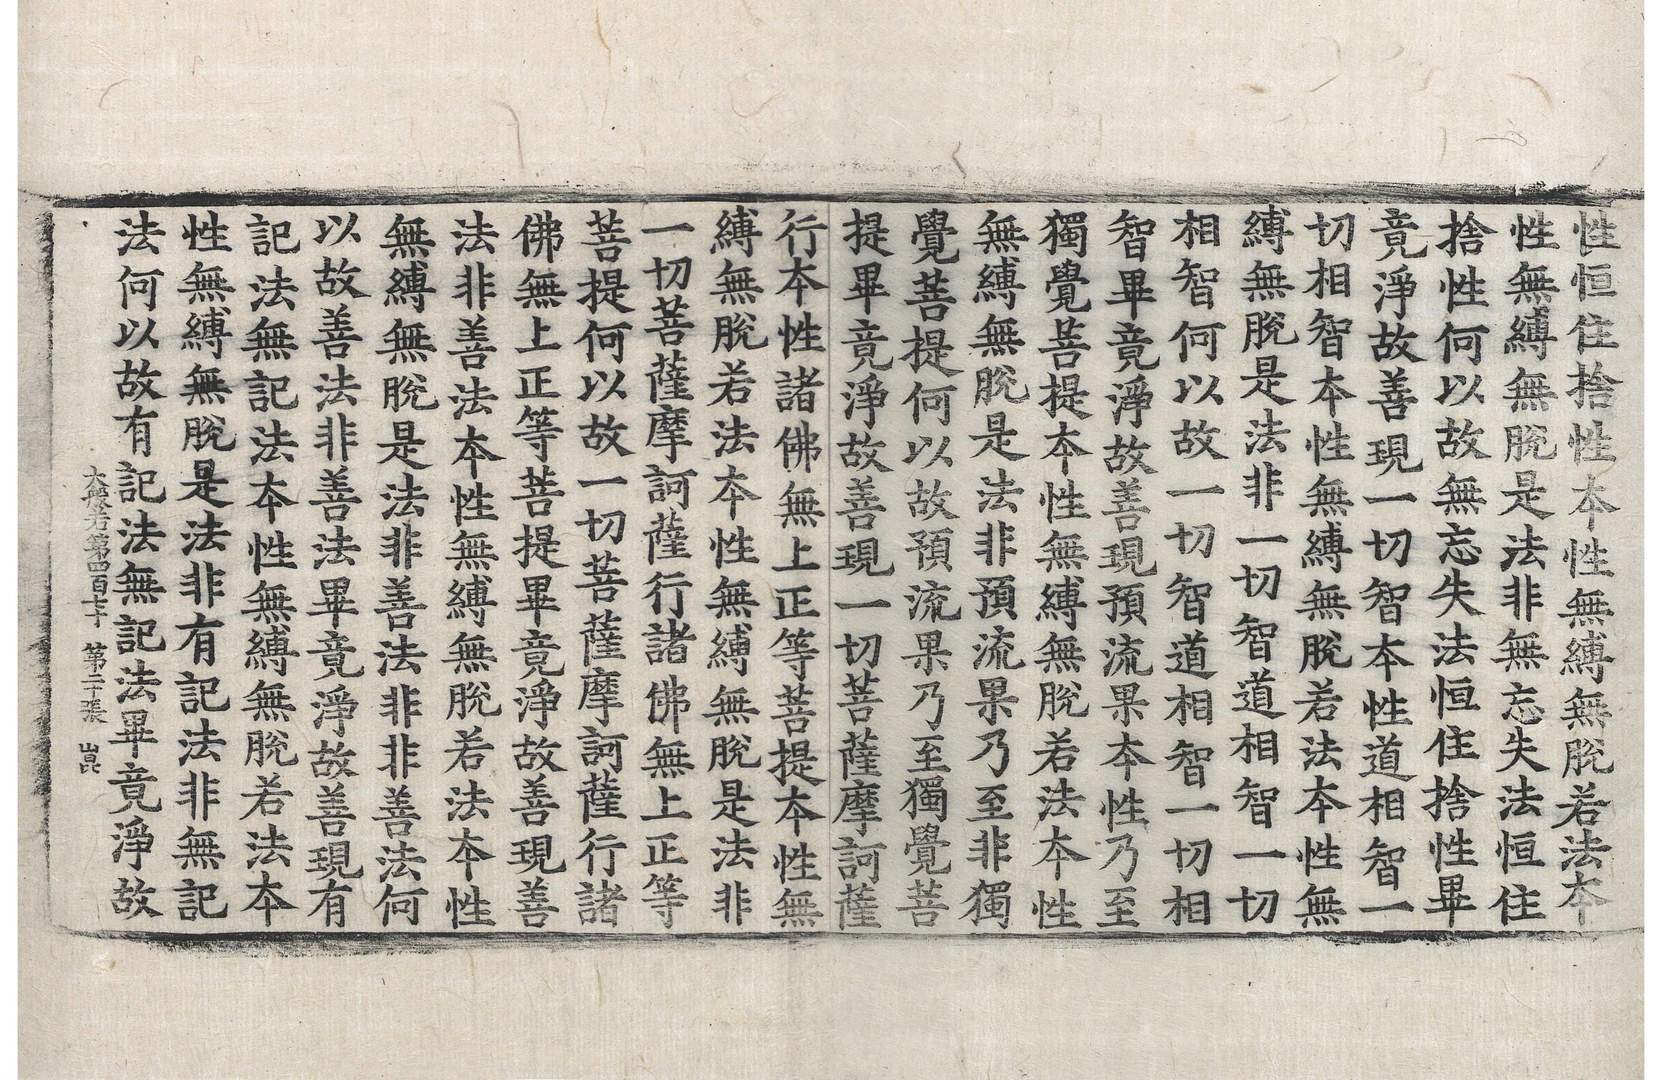 性恒住捨性本性無縛無脫若法本
性無縛無脫是法非無忘失法恒住
捨性何以故無忘失法恒住捨性畢
竟淨故善現一切智本性道相智一
切相智本性無縛無脫若法本性無
縛無脫是法非一切智道相智一切
相智何以故一切智道相智一切相
智畢竟淨故善現預流果本性乃至
獨覺菩提本性無縛無脫若法本性
無縛無脫是法非預流果乃至非獨
覺菩提何以故預流果乃至獨覺菩
提畢竟淨故善現一切菩薩摩訶薩
行本性諸佛無上正等菩提本性無
縛無脫若法本性無縛無脫是法非
一切菩薩摩訶薩行諸佛無上正等
菩提何以故一切菩薩摩訶薩行諸
佛無上正等菩提畢竟淨故善現善
法非善法本性無縛無脫若法本性
無縛無脫是法非善法非非善法何
以故善法非善法畢竟淨故善現有
記法無記法本性無縛無脫若法本
性無縛無脫是法非有記法非無記
法何以故有記法無記法畢竟淨故
大般若第四百七十 第二十張 崑